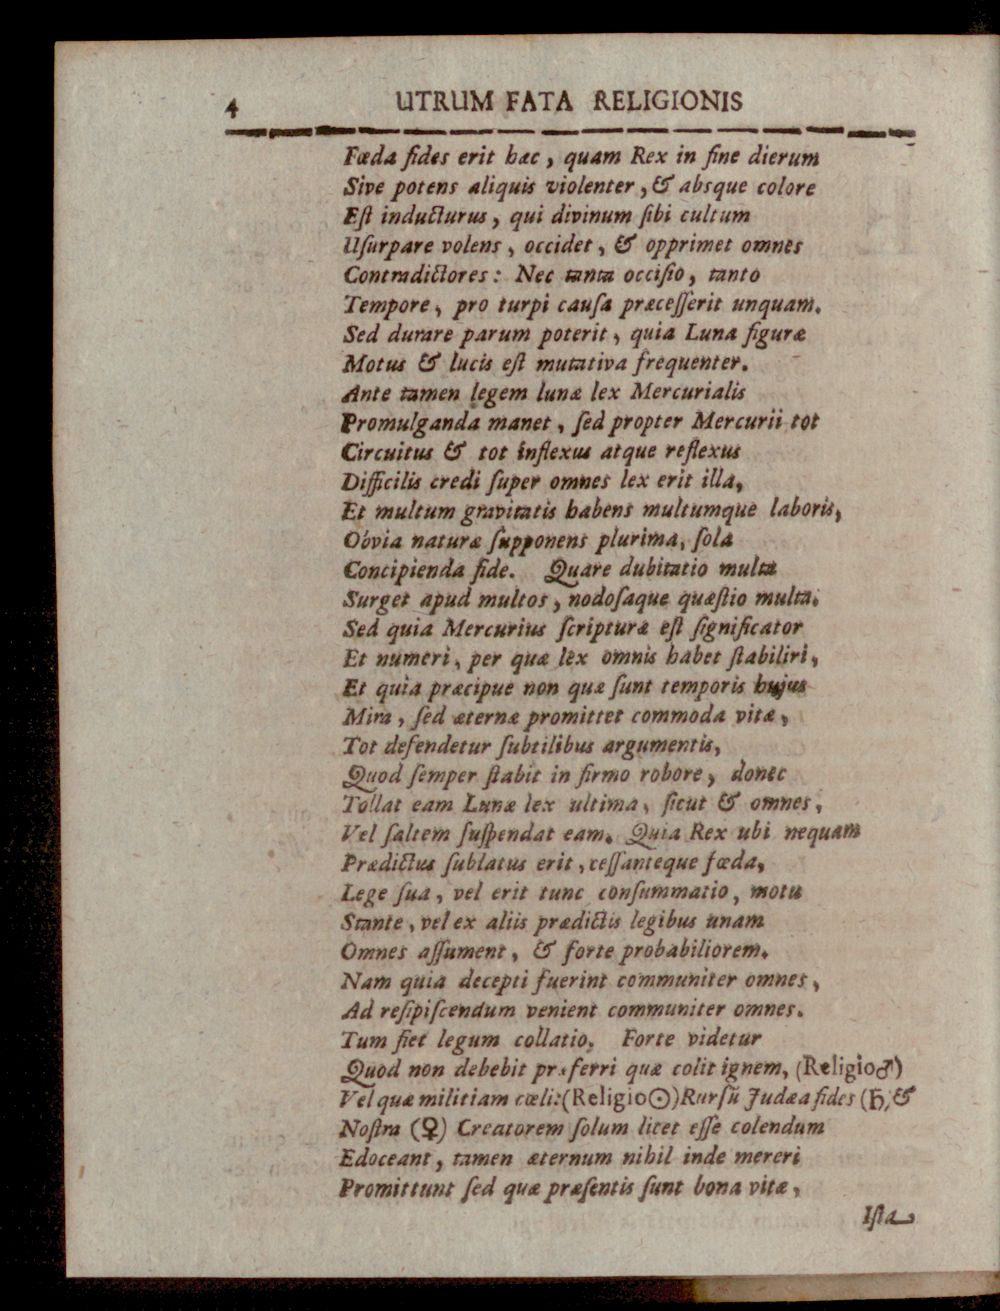 4 UTRUM FATA RELIGIONIS
Fœda fides erit hæc, quam Rex in fine dierum
Sive potens aliquis violenter, & absque colore
Eſt inducturus, qui divinum ſibi cultum
Uſurpare volens, occidet, & opprimet omnes
Contradictores: Nec tanta occiſio, tanto
Tempore, pro turpi cauſa præceſſerit unquam.
Sed durare parum poterit, quia Luna figuræ
Motus & lucis eſt mutativa frequenter.
Ante tamen legem lunæ lex Mercurialis
Promulganda manet, ſed propter Mercurii tot
Circuitus & tot inflexus atque reflexus
Difficilis credi ſuper omnes lex erit illa,
Et multum gravitatis habens multumque laboris,
Obvia naturæ ſupponens plurima, ſola
Concipienda fide. Quare dubitatio multa
Surget apud multos, nodoſaque quæſtio multa.
Sed quia Mercurius ſcripturæ eſt ſignificator
Et numeri, per quæ lex omnis habet ſtabiliri,
Et quia præcipue non quæ ſunt temporis hujus
Mira, ſed æternæ promittet commoda vitæ,
Tot defendetur ſubtilibus argumentis,
Quod ſemper ſtabit in firmo robore, donec
Tollat eam Lunæ lex ultima, ſicut & omnes,
Vel ſaltem ſuſpendat eam. Quia Rex ubi nequam
Prædictus ſublatus erit, ceſſanteque fœda,
Lege ſua, vel erit tunc conſummatio, motu
Stante, vel ex aliis prædictis legibus unam
Omnes aſſument, & forte probabiliorem.
Nam quia decepti fuerint communiter omnes,
Ad reſipiſcendum venient communiter omnes.
Tum fiet legum collatio. Forte videtur
Quod non debebit præferri quæ colit ignem, (Religio♂)
Vel quæ militiam cœli:(Religio☉) Rurſũ Judæa fides (♄,&
Noſtra (♀) Creatorem ſolum licet eſſe colendum
Edoceant, tamen æternum nihil inde mereri
Promittunt ſed quæ præſentis ſunt bona vitæ,
Iſta